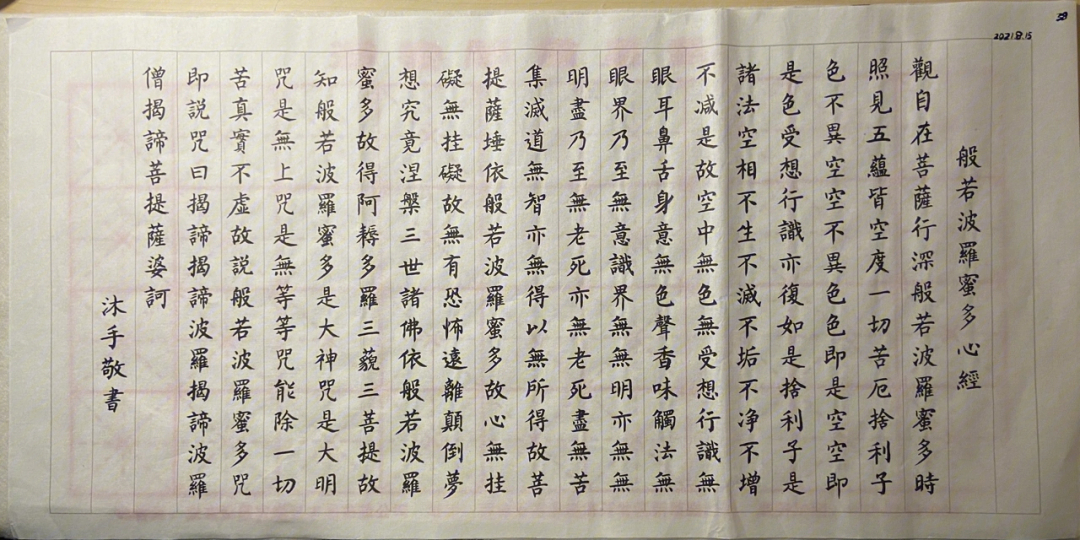 2021.8.15
般若波羅蜜多心經
觀自在菩薩行深般若波羅蜜多時
照見五蘊皆空度一切苦厄捨利子
色不異空空不異色色即是空空即
是色受想行識亦復如是捨利子是
諸法空相不生不滅不垢不净不增
不减是故空中無色無受想行識無
眼耳鼻舌身意無色聲香味觸法無
眼界乃至無意識界無無明亦無無
明盡乃至無老死亦無老死盡無苦
集滅道無智亦無得以無所得故菩
提薩埵依般若波羅蜜多故心無挂
礙無挂礙故無有恐怖遠離顛倒夢
想究竟涅槃三世諸佛依般若波羅
蜜多故得阿耨多羅三藐三菩提故
知般若波羅蜜多是大神咒是大明
咒是無上咒是無等等咒能除一切
苦真實不虛故説般若波羅蜜多咒
即説咒曰揭諦揭諦波羅揭諦波羅
僧揭諦菩提薩婆訶
沐手敬書